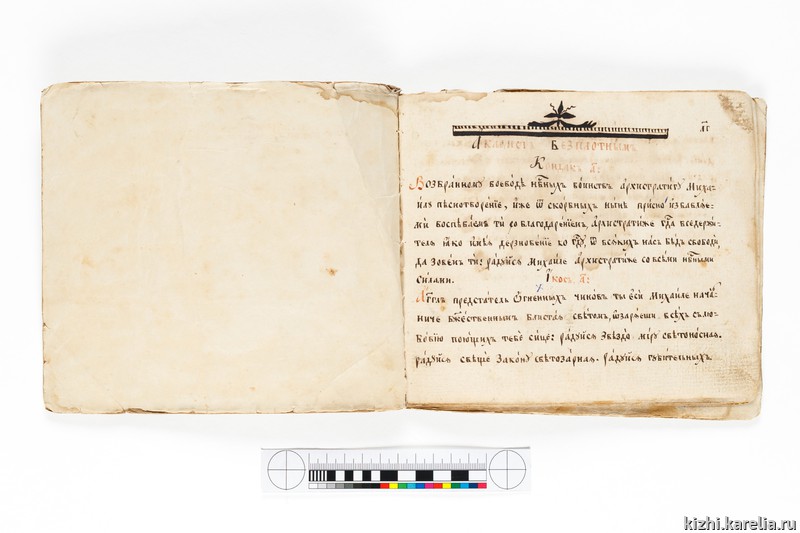 Акаѳистъ Безплотнымъ
Кондакъ а҃:
Возбранному воеводѣ нб҃ныхъ воинствъ архистратигу Миха-
илу пѣснотворение, иже ѿ скорбныхъ нынѣ присно избавляе-
ми воспѣваемъ ти со благодарениемъ, архистратиже гд҃а вседержи-
теля яко имѣя дерзновение ко гд҃у, ѿ всякихъ насъ бѣдъ свободи,
да зовемъ ти: радуйся Михаиле архистратиже со всѣми нб҃ными
силами. Iкосъ а҃:
Агг҃лъ предстатель Огненныхъ чиновъ ты еси Михаиле нача-
ниче бж҃ественнымъ блистая свѣтомъ, ѡзаряеши всѣхъ съ лю-
бовию поющихъ тебѣ сице: радуйся Звѣздо миру свѣтоносная.
радуйся свѣще Закону свѣтозарная. радуйся губительныхъ
kizhi.karelia.ru